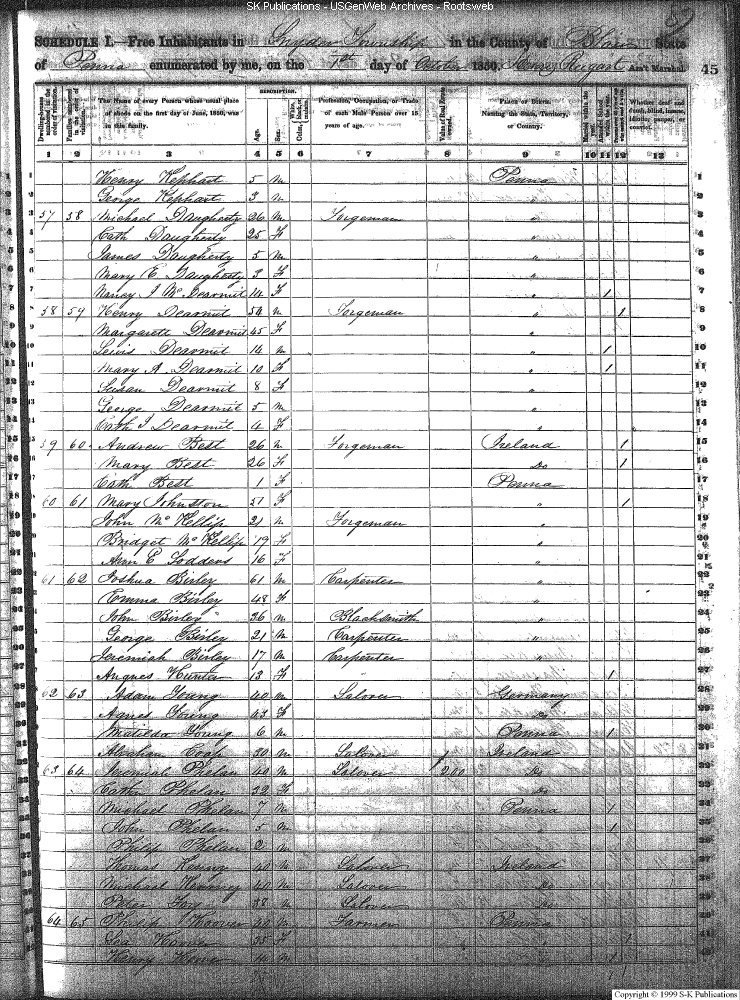 SK Publications - USGenWeb Archives - Rootsweb
SCHEDULE I.—Free Inhabitants in Snyder Township in the County of Blair State
of Penna enumerated by me, on the 1st day of October 1850. Henry Ass't Marshal. 45
DESCRIPTION.
Dwelling-houses numbered in the order of visitation. Families numbered in the order of visitation. The Name of every Person whose usual place of abode on the first day of June, 1850, was in this family. Age. Sex. Color, White, black, or mulatto. Profession, Occupation, or Trade of each Male Person over 15 years of age. Value of Real Estate owned. Place of Birth. Naming the State, Territory, or Country. Married within the year. Whether deaf and dumb, blind, insane, idiotic, pauper, or convict.
1 2 3 4 5 6 7 8 9 10 11 12 13
1 Henry Kephart 5 m Penna 1
2 George Kephart 3 m " 2
3 57 58 Michael Daugherty 26 m Forgeman " 3
4 Cath Daugherty 25 F " 4
5 James Daugherty 5 m " 5
6 Mary E Daugherty 3 F " 6
7 Nancy J McDearmit 14 F " 1 7
8 58 59 Henry Dearmit 54 m Forgeman " 1 8
9 Margarett Dearmit 45 F " 9
10 Lewis Dearmit 14 m " 1 10
11 Mary A Dearmit 10 F " 1 11
12 Susan Dearmit 8 F " 12
13 George Dearmit 5 m " 13
14 Cath J Dearmit 4 F " 14
15 59 60 Andrew Best 26 m Forgeman Ireland 1 15
16 Mary Best 26 F Do 1 16
17 Cath Best 1 F Penna 17
18 60 61 Mary Johnston 51 F " 1 18
19 John McKellip 21 m Forgeman " 19
20 Bridget McKellip 19 F " 20
21 Ann E 16 F " 21
22 61 62 Joshua Birley 61 m Carpenter " 22
23 Emma Birley 48 F " 23
24 John Birley 36 m Blacksmith " 24
25 George Birley 21 m Carpenter " 25
26 Jeremiah Birley 17 m Carpenter " 26
27 Hunter 13 F " 1 27
28 62 63 Adam Young 40 m Labover Germany 28
29 Agnes Young 43 F Do 29
30 Matilda Young 6 m Penna 1 30
31 30 m Labover Ireland 31
32 63 64 Jeremiah Phelan 40 m Labover $200 Do 32
33 Cath Phelan 32 F Do 33
34 Michael Phelan 7 m Penna 1 34
35 John Phelan 5 m " 1 35
36 Philip Phelan 2 m " 36
37 Thomas 40 m Labover Ireland 37
38 Michael 40 m Labover Do 38
39 Peter 38 m Labover Do 39
40 64 65 Philip Hoover 40 m Farmer Penna 40
41 Hoover 35 F " 41
42 Henry Hoover m " 1 42
Copyright © 1999 S-K Publications